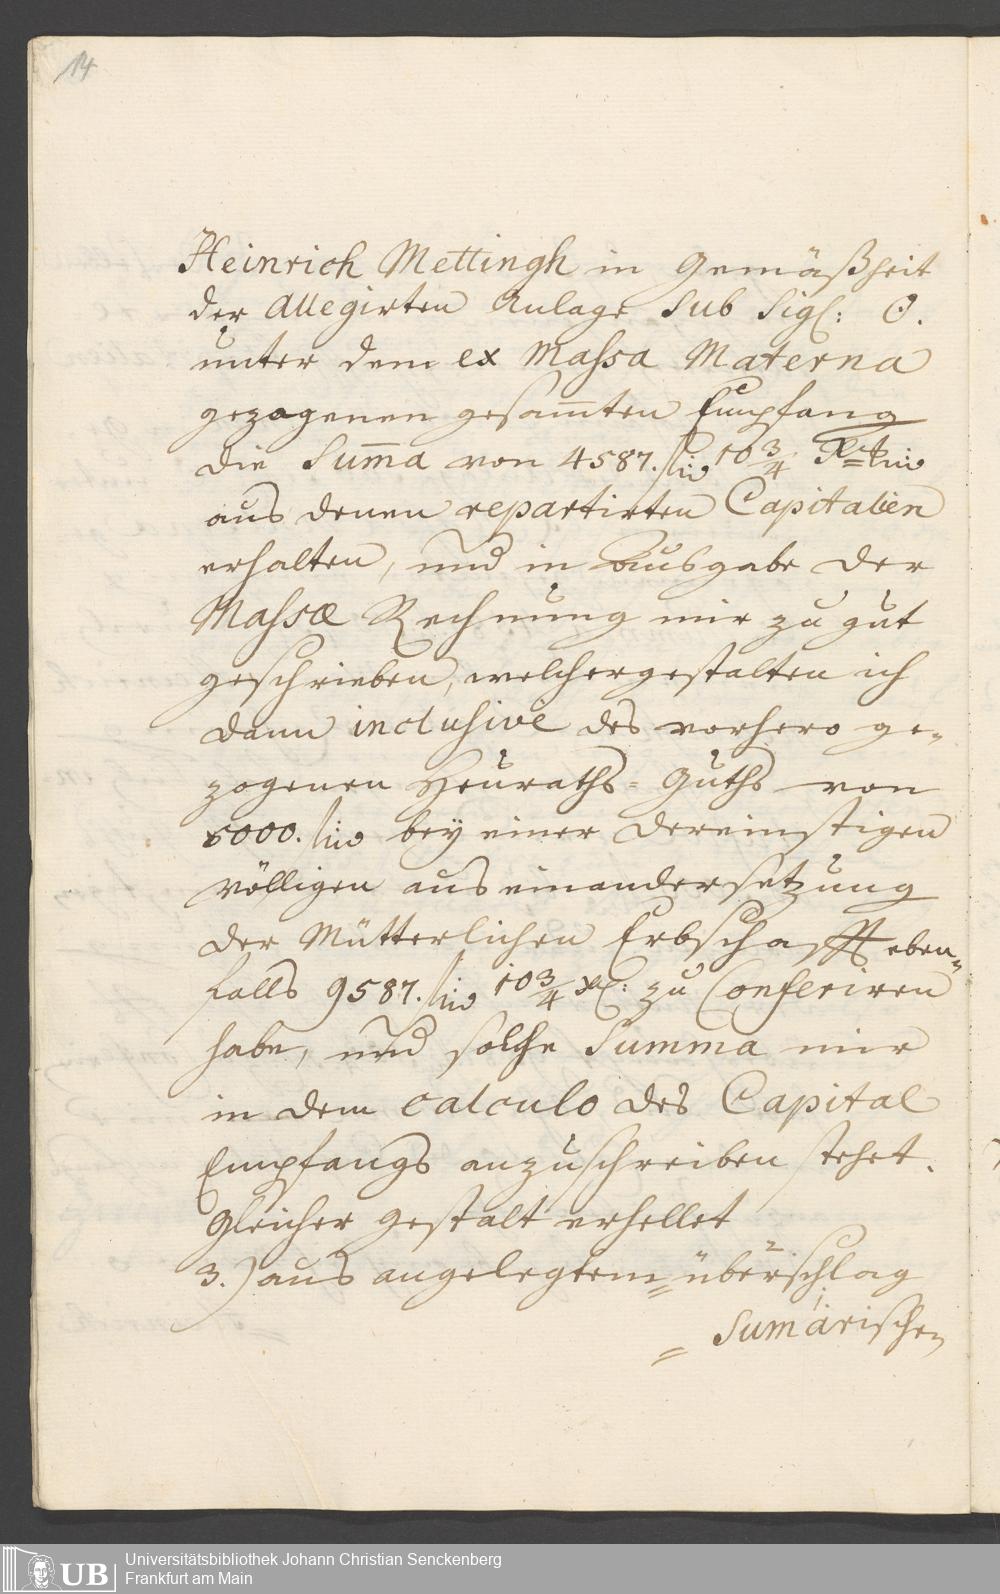 14
Heinrich Mettingh in Gemäßheit
der allegirten Anlage sub Sigl: O.
unter dem ex Massa Materna
gezogenen gesam̅ten Empfang
die Sum̅a von 4587. 10 3/4
aus denen repartirten Capitalien
erhalten, und in Ausgabe der
Massæ Rechnung mir zu gut
geschrieben, welchergestalten ich
dann inclusive des vorhero ge-
zogenen Heuraths-Guths von
5000. bey einer dereinstigen
völligen auseinandersetzung
der Mütterlichen Erbschafft eben-
falls 9587. 10 3/4 xr: zu Conferiren
habe, und solche Summa mir
in dem calculo des Capital
Empfangs anzuschreiben stehet.
Gleicher gestalt erhellet
3.) aus angelegtem überschlag
Sum̅arischen
Universitätsbibliothek Johann Christian Senckenberg
UB Frankfurt am Main